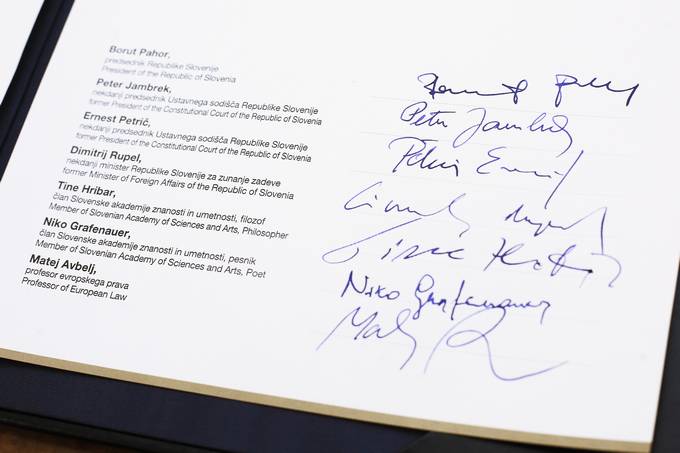 Borut Pahor,
predsednik Republike Slovenije
President of the Republic of Slovenia
Peter Jambrek,
nekdanji predsednik Ustavnega sodišča Republike Slovenije
former President of the Constitutional Court of the Republic of Slovenia
Ernest Petrič,
nekdanji predsednik Ustavnega sodišča Republike Slovenije
former President of the Constitutional Court of the Republic of Slovenia
Dimitrij Rupel,
nekdanji minister Republike Slovenije za zunanje zadeve
former Minister of Foreign Affairs of the Republic of Slovenia
Tine Hribar,
član Slovenske akademije znanosti in umetnosti, filozof
Member of Slovenian Academy of Sciences and Arts, Philosopher
Niko Grafenauer,
član Slovenske akademije znanosti in umetnosti, pesnik
Member of Slovenian Academy of Sciences and Arts, Poet
Matej Avbelj,
profesor evropskega prava
Professor of European Law
Niko Grafenauer